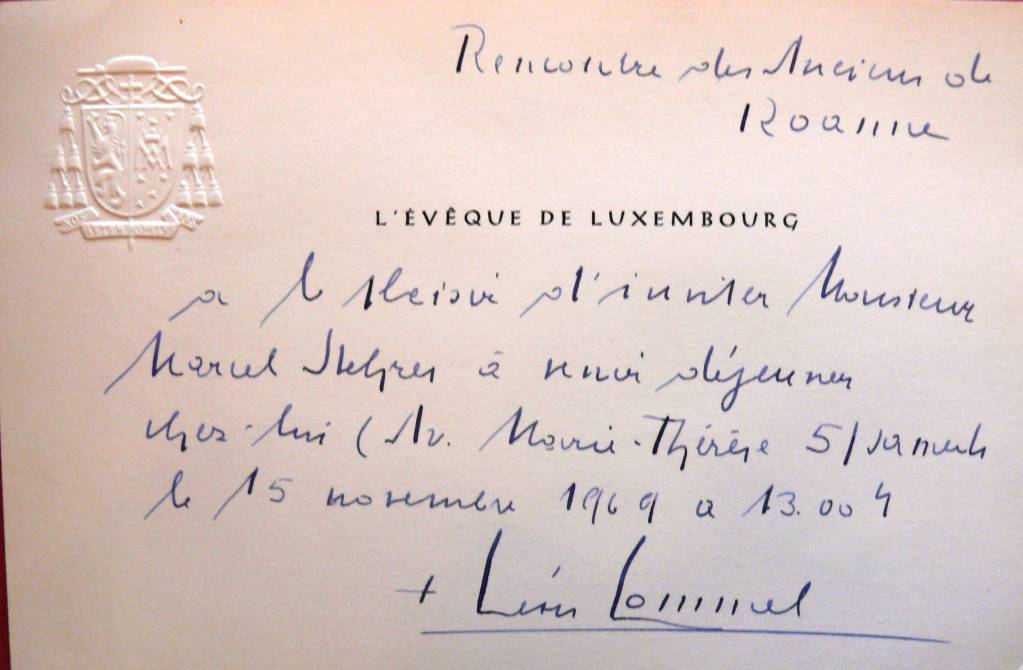 Rencontre des Anciens de
Roanne
L'ÉVÊQUE DE LUXEMBOURG
a le plaisir d'inviter Monsieur
Marcel à venir déjeuner
chez-lui (Av. Marie-Thérèse 5) samedi
le 15 novembre 1969 a 13.00 h
+ Léon Lommel